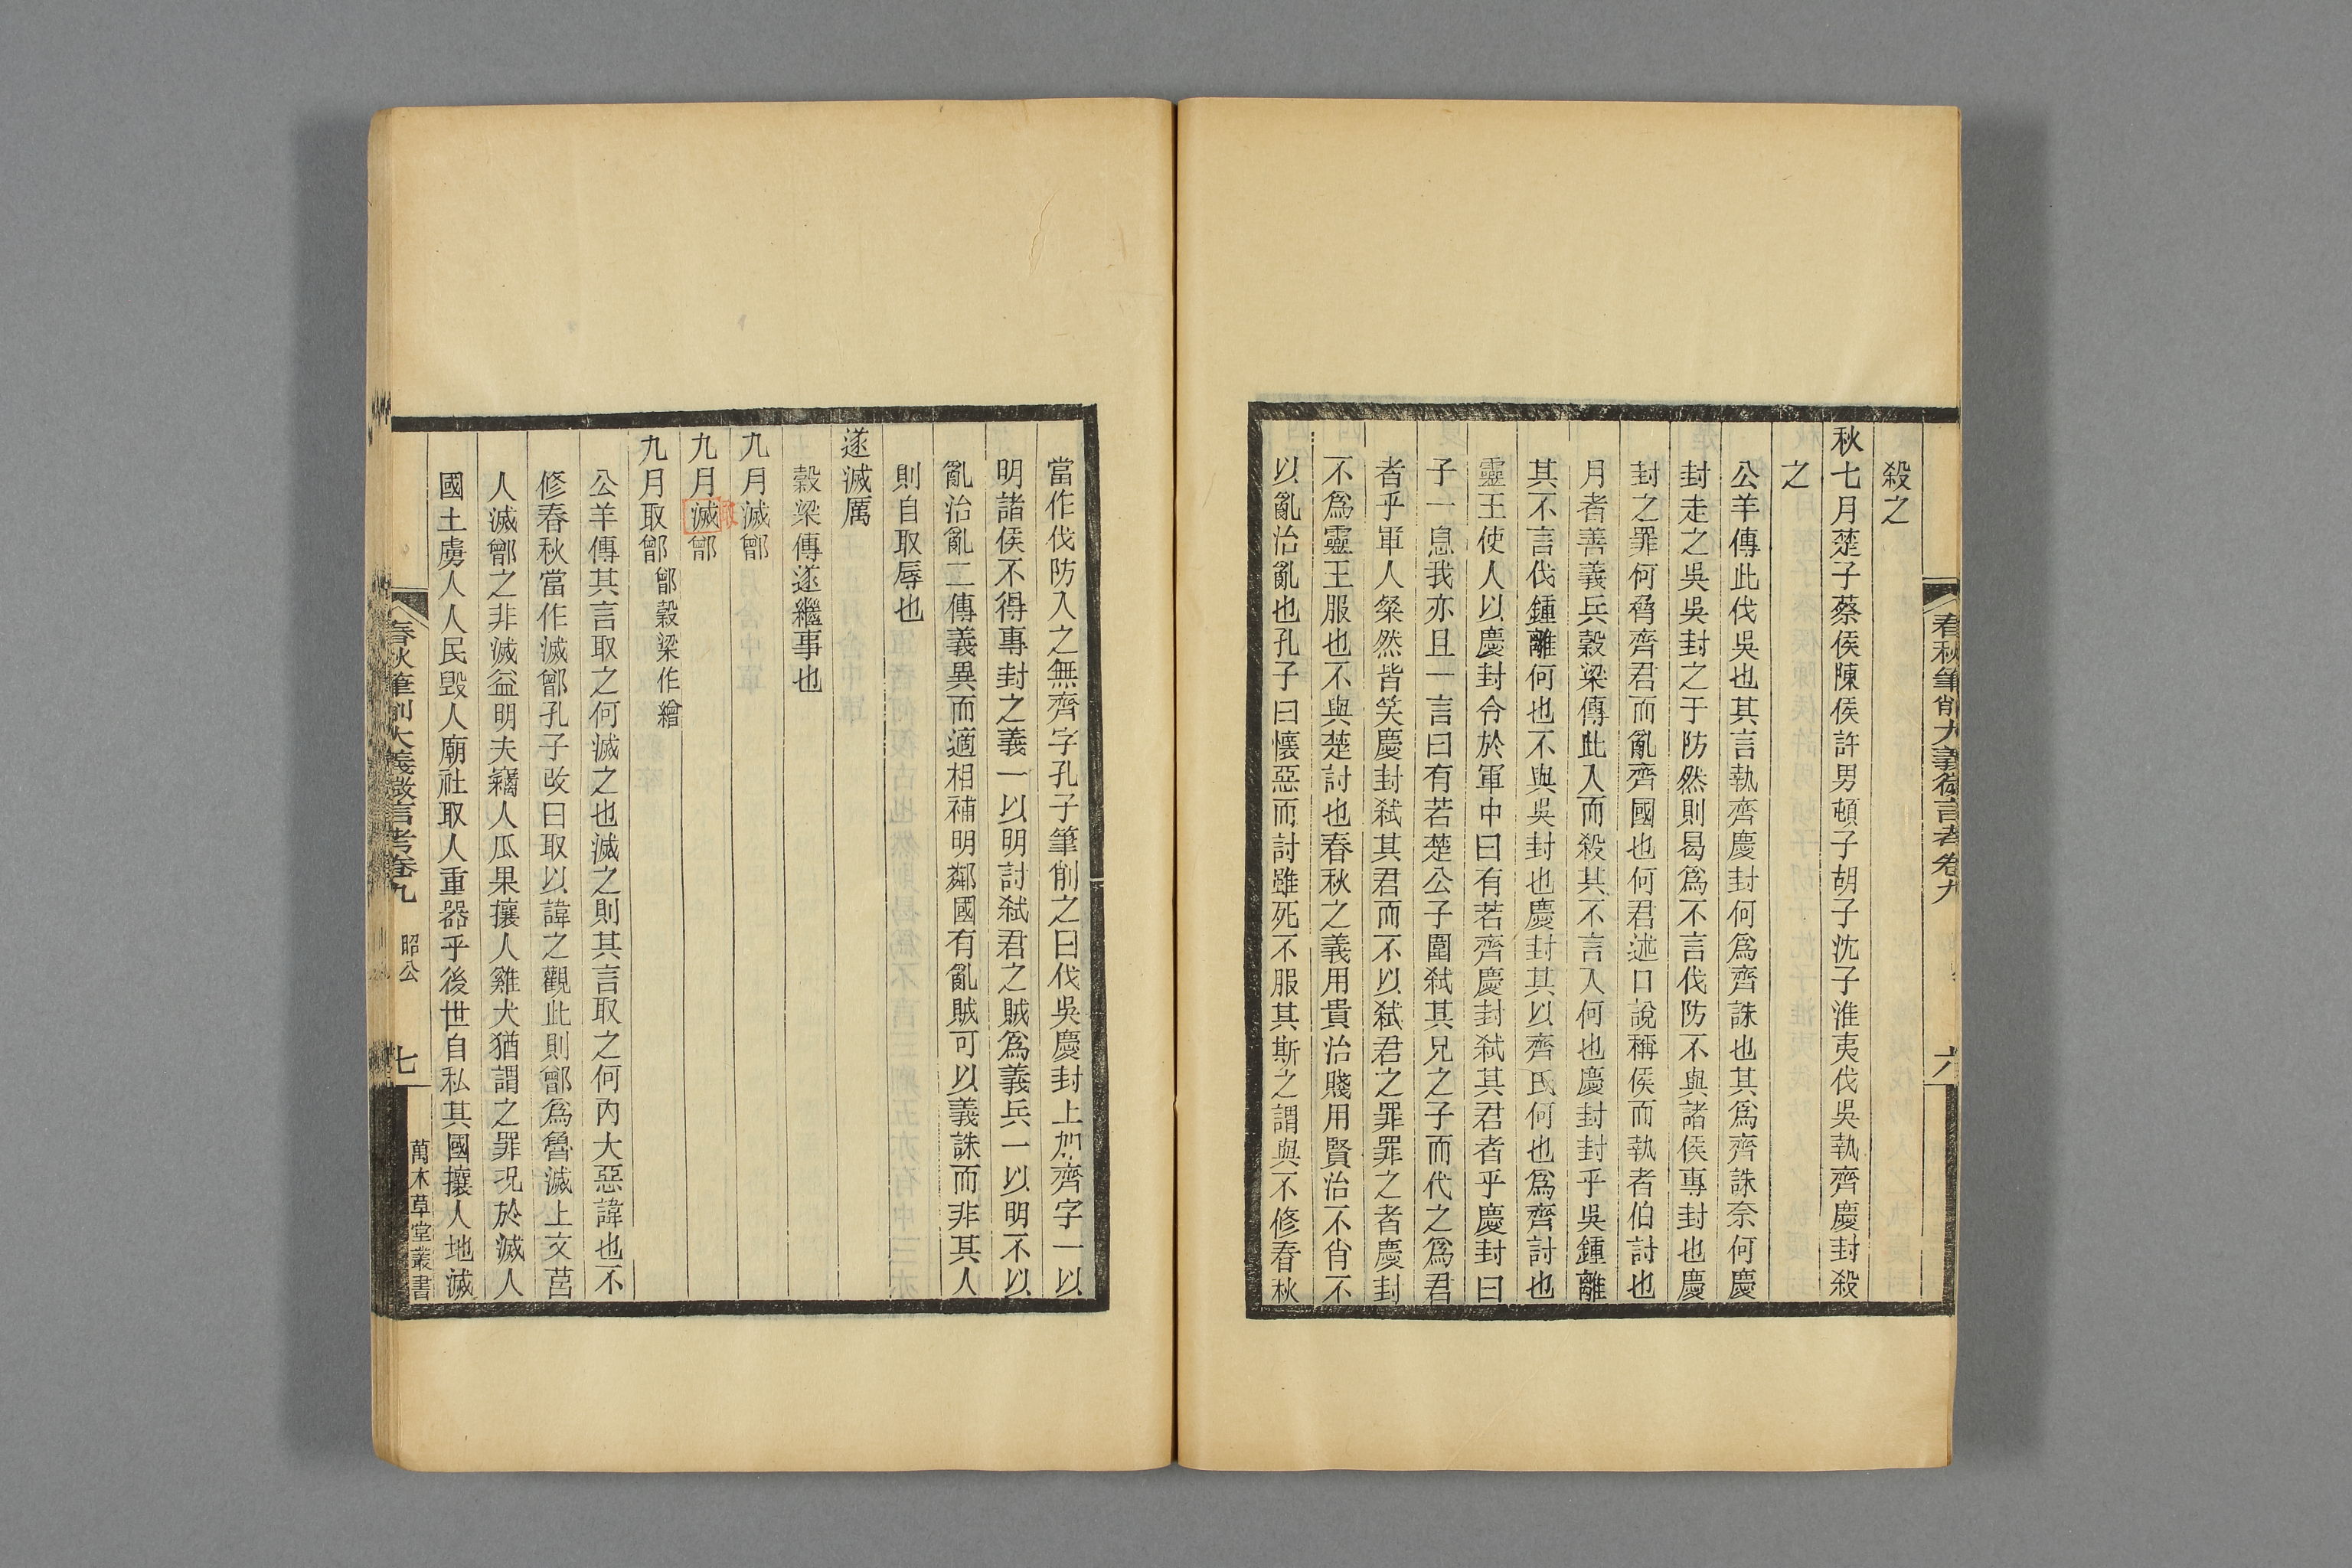 殺之
秋七月楚子蔡侯陳侯許男頓子胡子沈子淮夷伐吳執齊慶封殺
之
公羊傳此伐吳也其言執齊慶封何爲齊誅也其爲齊誅奈何慶
封走之吳吳封之于防然則曷爲不言伐防不與諸侯專封也慶
封之罪何脅齊君而亂齊國也何君述口說稱侯而執者伯討也
月者善義兵穀梁傳此入而殺其不言入何也慶封封乎吳鍾離
其不言伐鍾離何也不與吳封也慶封其以齊氏何也爲齊討也
靈王使人以慶封令於軍中曰有若齊慶封弒其君者乎慶封曰
子一息我亦且一言曰有若楚公子圍弒其兄之子而代之爲君
者乎軍人粲然皆笑慶封弒其君而不以弒君之罪罪之者慶封
不爲靈王服也不與楚討也春秋之義用貴治賤用賢治不肖不
以亂治亂也孔子曰懷惡而討雖死不服其斯之謂與不修春秋
春秋筆削大義微言考卷九
六
當作伐防入之無齊字孔子筆削之曰伐吳慶封上加齊字一以
明諸侯不得專封之義一以明討弒君之賊爲義兵一以明不以
亂治亂二傳義異而適相補明鄰國有亂賊可以義誅而非其人
則自取辱也
遂滅厲
穀梁傳遂繼事也
九月滅鄫
九月滅鄫
取
九月取鄫 鄫穀梁作繒
公羊傳其言取之何滅之也滅之則其言取之何內大惡諱也不
修春秋當作滅鄫孔子改曰取以諱之觀此則鄫爲魯滅上文莒
人滅鄫之非滅益明夫竊人瓜果攘人雞犬猶謂之罪況於滅人
國土虜人人民毀人廟社取人重器乎後世自私其國攘人地滅
春秋筆削大義微言考卷九 昭公
七
萬木草堂叢書